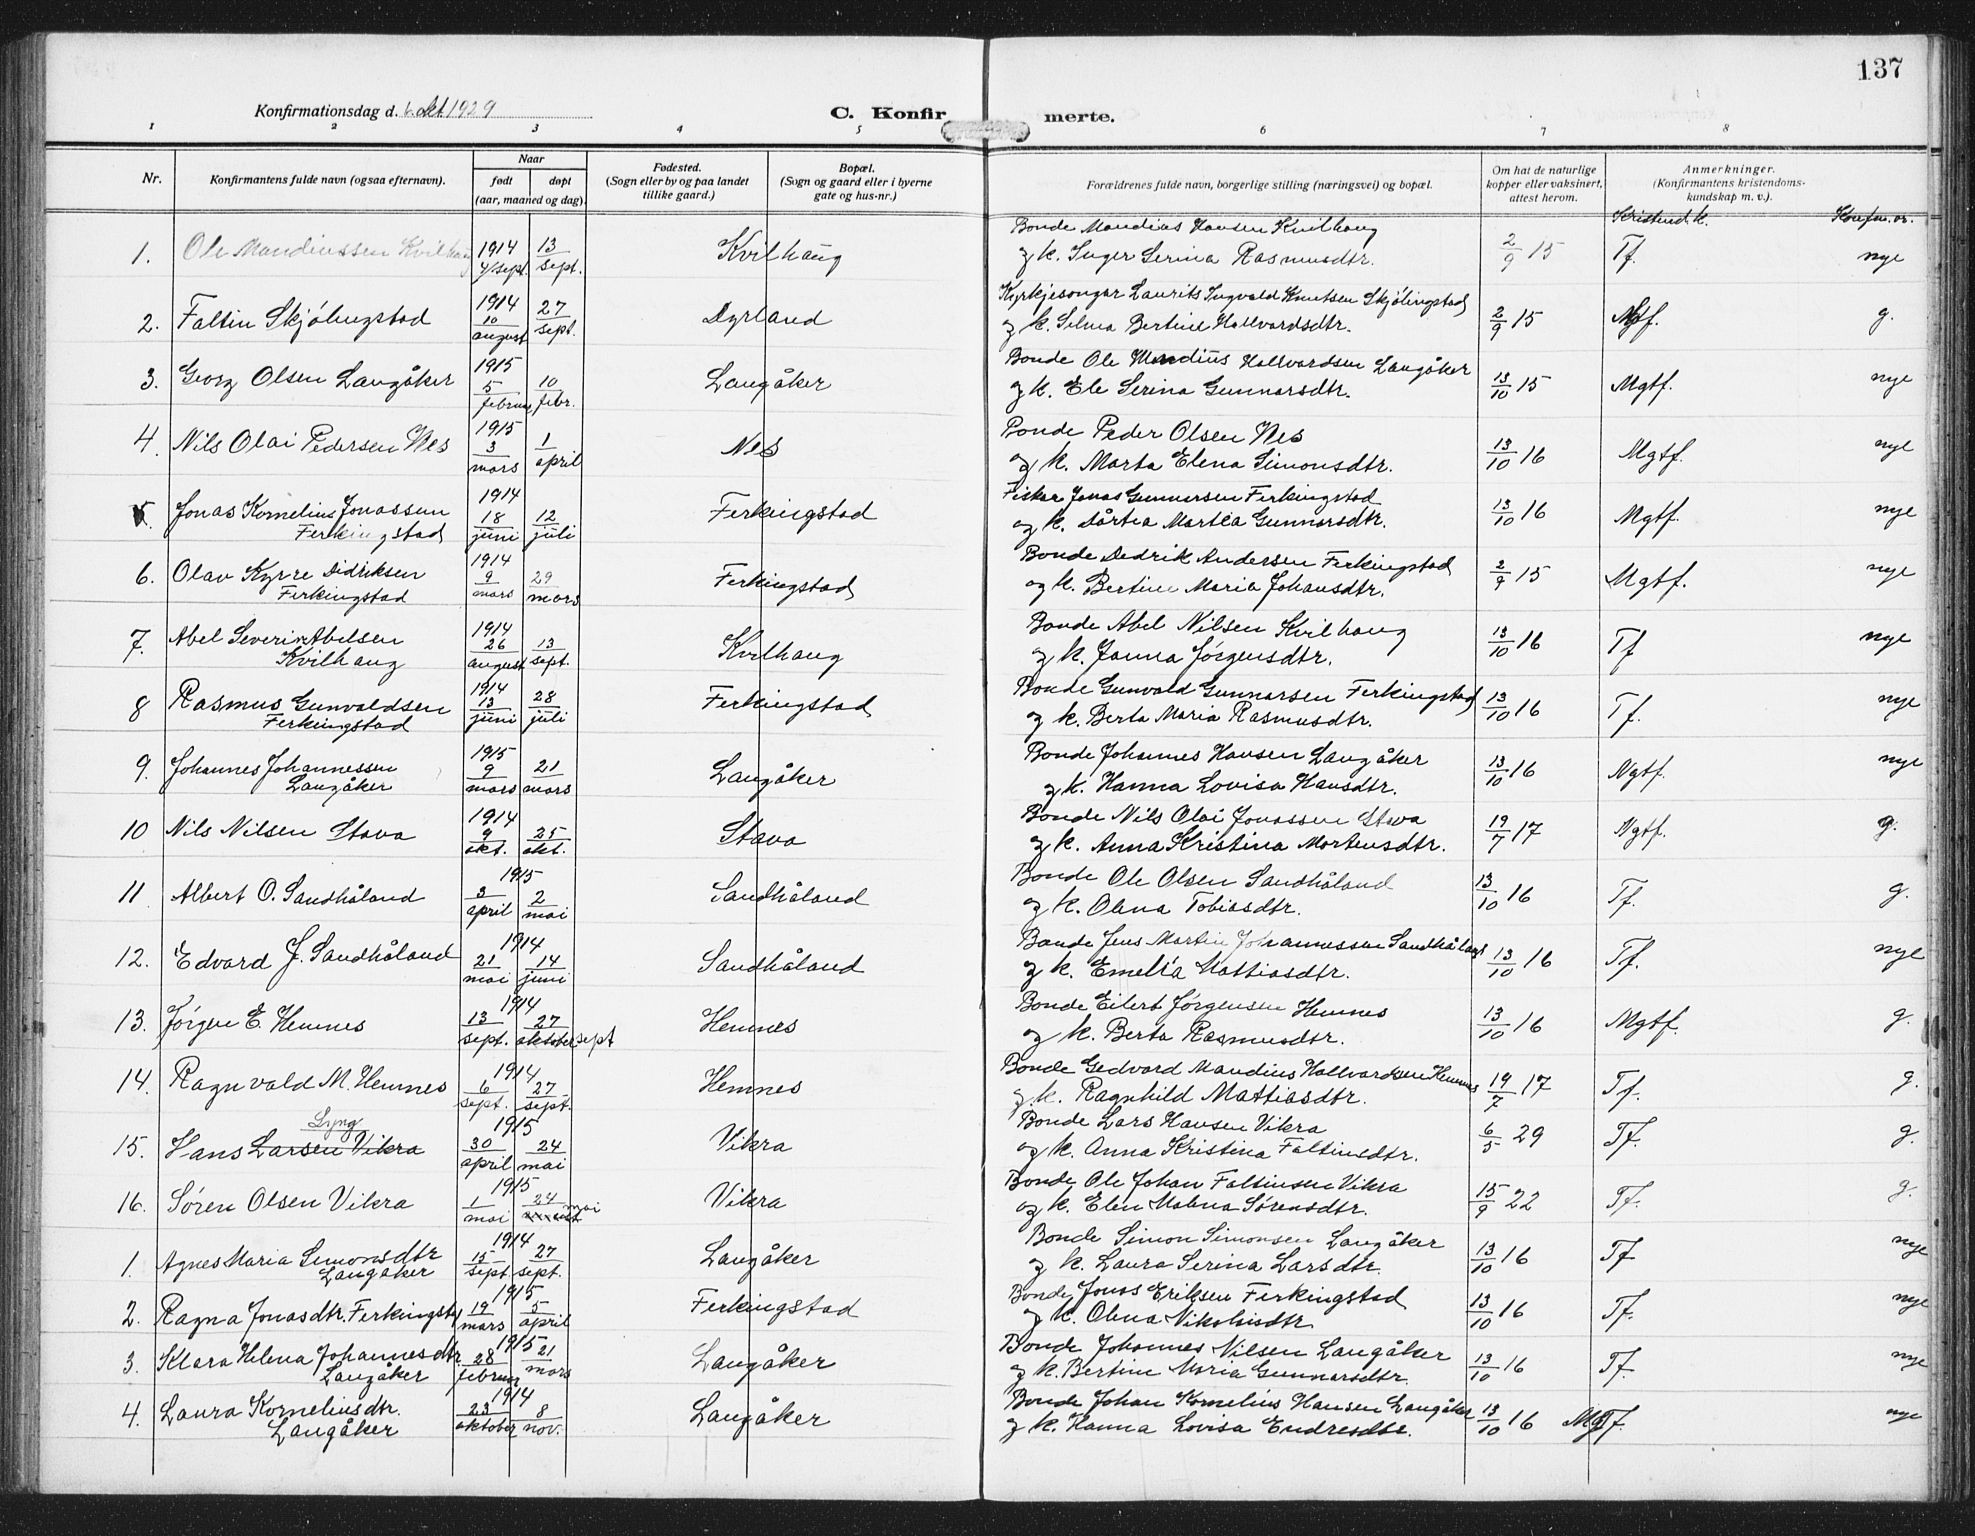 137
Konfirmationsdag d. 6 okt 1929
C. Konfir merte.
1 2 3 4 5 6 7 8
Nr.
Konfirmantens fulde navn (ogsaa efternavn).
Naar
født døpt
(aar, maaned og dag).
Fødested.
(Sogn eller by og paa landet
tillike gaard.)
Bopæl.
(Sogn og gaard eller i byerne
gate og hus-nr.)
Forældrenes fulde navn, borgerlige stilling (næringsvei) og bopæl.
Om hat de naturlige
kopper eller vaksinert,
attest herom.
Anmerkninger.
(Konfirmantens kristendoms-
kundskap m. v.).
Kristend. k. Konfm. or.
1. Ole Mandiussen Kvilhaug 1914 4/sept. 13 sept. Kvilhaug Bonde Mandius Hansen Kvilhaug
og k. Inger Serina Rasmusdtr. 2/9 15 Tf. nye
2. Faltin Skjølingstad 1914 10 august 27 sept. Dyrland Kyrkjesongar Laurits Ingvald Knutsen Skjølingstad
og k. Selma Bertine Hallvardsdtr. 2/9 15 Mgtf. g.
3. Georg Olsen Langåker 1915 5 februar 10 febr. Langåker Bonde Ole Mandius Hallvardsen Langåker
og k. Ele Serina Gunnarsdtr. 13/10 15 Mgtf. nye
4. Nils Olai Pedersen Nes 1915 3 mars 1 april Nes Bonde Peder Olsen Nes
og k. Marta Elena Simonsdtr. 13/10 16 Mgtf. nye
5. Jonas Kornelius Jonassen
Ferkingstad 1914 18 juni 12 juli Ferkingstad Fiskar Jonas Gunnarsen Ferkingstad
og k. Dårtea Martea Gunnarsdtr. 13/10 16 Mgtf. nye
6. Olav Kyrre Didriksen
Ferkingstad 1914 9 mars 29 mars Ferkingstad Bonde Dedrik Andersen Ferkingstad
og k. Bertine Maria Johansdtr. 2/9 15 Mgtf. nye
7. Abel Severin Abelsen
Kvilhaug 1914 26 august 13 sept. Kvilhaug Bonde Abel Nilsen Kvilhaug
og k. Janna Jørgensdtr. 13/10 16 Tf nye
8 Rasmus Gunvaldsen
Ferkingstad 1914 13 juni 28 juli Ferkingstad Bonde Gunvald Gunnarsen Ferkingstad
og k. Berta Maria Rasmusdtr. 13/10 16 Tf. nye
9. Johannes Johannessen
Langåker 1915 9 mars 21 mars Langåker Bonde Johannes Hansen Langåker
og k. Hanna Lovisa Hansdtr. 13/10 16 Ngtf. nye
10 Nils Nilsen Stava 1914 9 okt. 25 okt. Stava Bonde Nils Olai Jonassen Stava
og k. Anna Kristina Mortensdtr. 19/7 17 Ngtf. g.
11 Albert O. Sandhåland 1915 3 april 2 mai Sandhåland Bonde Ole Olsen Sandhåland
og k. Olena Tobiasdtr. 13/10 16 Tf. g.
12. Edvard J. Sandhåland 1914 21 mai 14 juni Sandhåland Bonde Jens Martin Johannessen Sandhåland
og k. Emelia Mattiasdtr. 13/10 16 Tf. nye
13. Jørgen E. Hemnes 1914 13 sept. 27 oktober sept Hemnes Bonde Eilert Jørgensen Hemnes
og k. Berta Rasmusdtr. 13/10 16 Mgtf. g.
14. Ragnvald M. Hemnes 1914 6 sept. 27 sept. Hemnes Bonde Gedvard Mandius Hallvardsen Hemnes
og k. Ragnhild Mattiasdtr. 19/7 17 Tf. g.
Lyng
15. Hans Larsen Vikra 1915 30 april 24 mai Vikra Bonde Lars Hansen Vikra
og k. Anna Kristina Faltinsdtr. 6/5 29 Tf. g.
16. Søren Olsen Vikra 1915 1 mai 24 mai Vikra Bonde Ole Johan Faltinsen Vikra
og k. Elen Malena Sørensdtr. 15/9 22 Tf. g.
1. Agnes Maria Simonsdtr
Langåker 1914 15 sept. 27 sept. Langåker Bonde Simon Simonsen Langåker
og k. Laura Serina Larsdtr. 13/10 16 Tf nye
2. Ragna Jonasdtr. Ferkingstad 1915 19 mars 5 april Ferkingstad Bonde Jonas Eriksen Ferkingstad
og k. Olena Nikolaisdtr 13/10 16 Tf. nye
3. Klara Helena Johannesdtr
Langåker 1915 28 februar 21 mars Langåker Bonde Johannes Nilsen Langåker
og k. Bertine Maria Gunnarsdtr. 13/10 16 Tf. nye
4. Laura Korneliusdtr.
Langåker 1914 23 oktober 8 nov. Langåker Bonde Johan Kornelius Hansen Langåker
og k. Hanna Lovisa Endresdtr. 13/10 16 MgTf. nye